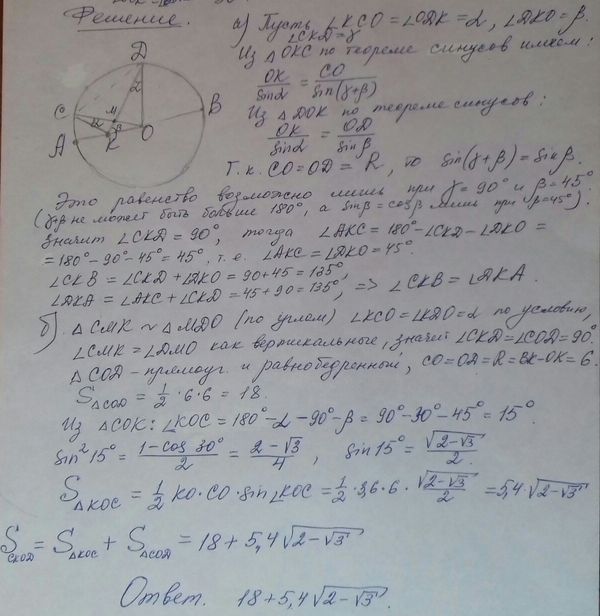 Решение.
а) Пусть ∠KCO = ∠ODK = α, ∠DKO = β.
∠CKD = γ
Из △OKC по теореме синусов имеем:
OK/sinα = CO/sin(γ+β)
Из △DOK по теореме синусов:
OK/sinα = OD/sinβ
Т.к. CO = OD = R, то sin(γ+β) = sinβ.
D
α
C
M
B
α
β
O
A
K
Это равенство возможно лишь при γ = 90° и β = 45°.
не может быть больше 180°, а sinβ = cosβ лишь при β = 45°).
Значит ∠CKD = 90°, тогда ∠AKC = 180° - ∠CKD - ∠DKO =
= 180° - 90° - 45° = 45°, т.е. ∠AKC = ∠DKO = 45°.
∠CKB = ∠CKD + ∠DKO = 90 + 45 = 135°,
∠DKA = ∠AKC + ∠CKD = 45 + 90 = 135°, => ∠CKB = ∠DKA.
б) △CMK ~ △MDO (по углам) ∠KCO = ∠KDO = α по условию,
∠CMK = ∠DMO как вертикальные, значит ∠CKD = ∠COD = 90°.
△COD - прямоуг. и равнобедренный, CO = OD = R = BK - OK = 6.
S△COD = 1/2 · 6 · 6 = 18.
Из △COK: ∠KOC = 180° - α - 90° - β = 90° - 30° - 45° = 15°.
sin²15° = (1 - cos 30°)/2 = (2 - √3)/4, sin 15° = √(2 - √3)/2.
S△KOC = 1/2 KO · CO · sin∠KOC = 1/2 · 3,6 · 6 · √(2 - √3)/2 = 5,4 · √(2 - √3)
SCKOD = S△KOC + S△COD = 18 + 5,4√(2 - √3)
Ответ. 18 + 5,4√(2 - √3).